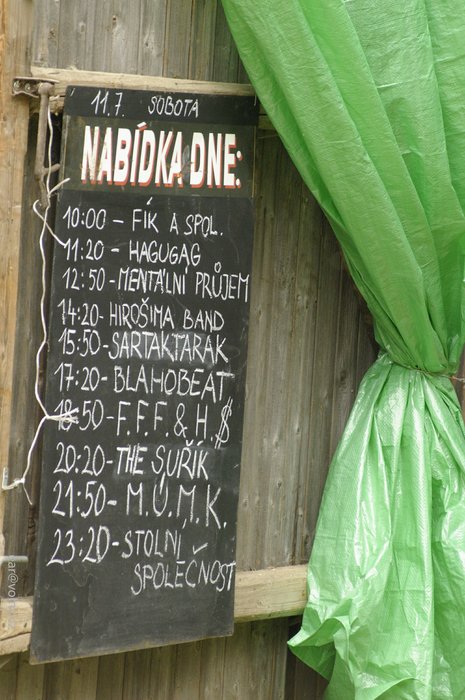 11.7. SOBOTA
NABÍDKA DNE:
10:00 – FÍK A SPOL.
11:20 – HAGUGAG
12:50 – MENTÁLNÍ PRŮJEM
14:20 - HIROŠIMA BAND
15:50 - SARTAKTARAK
17:20 - BLAHOBEAT
18:50 - F.F.F. & H.$
20:20 - THE SUŘÍK
21:50 - M.U.M.K.
23:20 - STOLNÍ
SPOLEČNOST